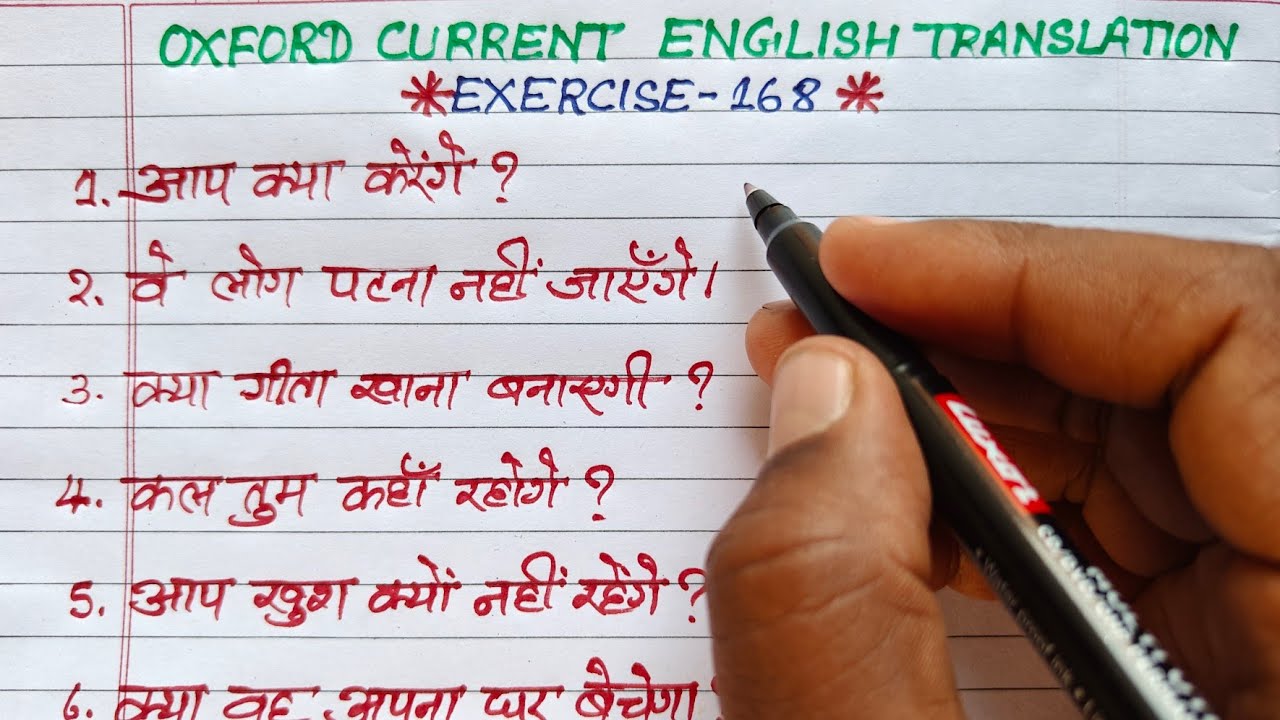 OXFORD CURRENT ENGLISH TRANSLATION
*EXERCISE-168*
1. आप क्या करेंगे ?
२. वे लोग पटना नहीं जाएँगे।
3. क्या गीता खाना बनाएगी ?
4. कल तुम कहाँ रहोगे ?
5. आप खुश क्यों नहीं रहेंगे ?
6. क्या वह अपना घर बेचेगा ?
Luxor